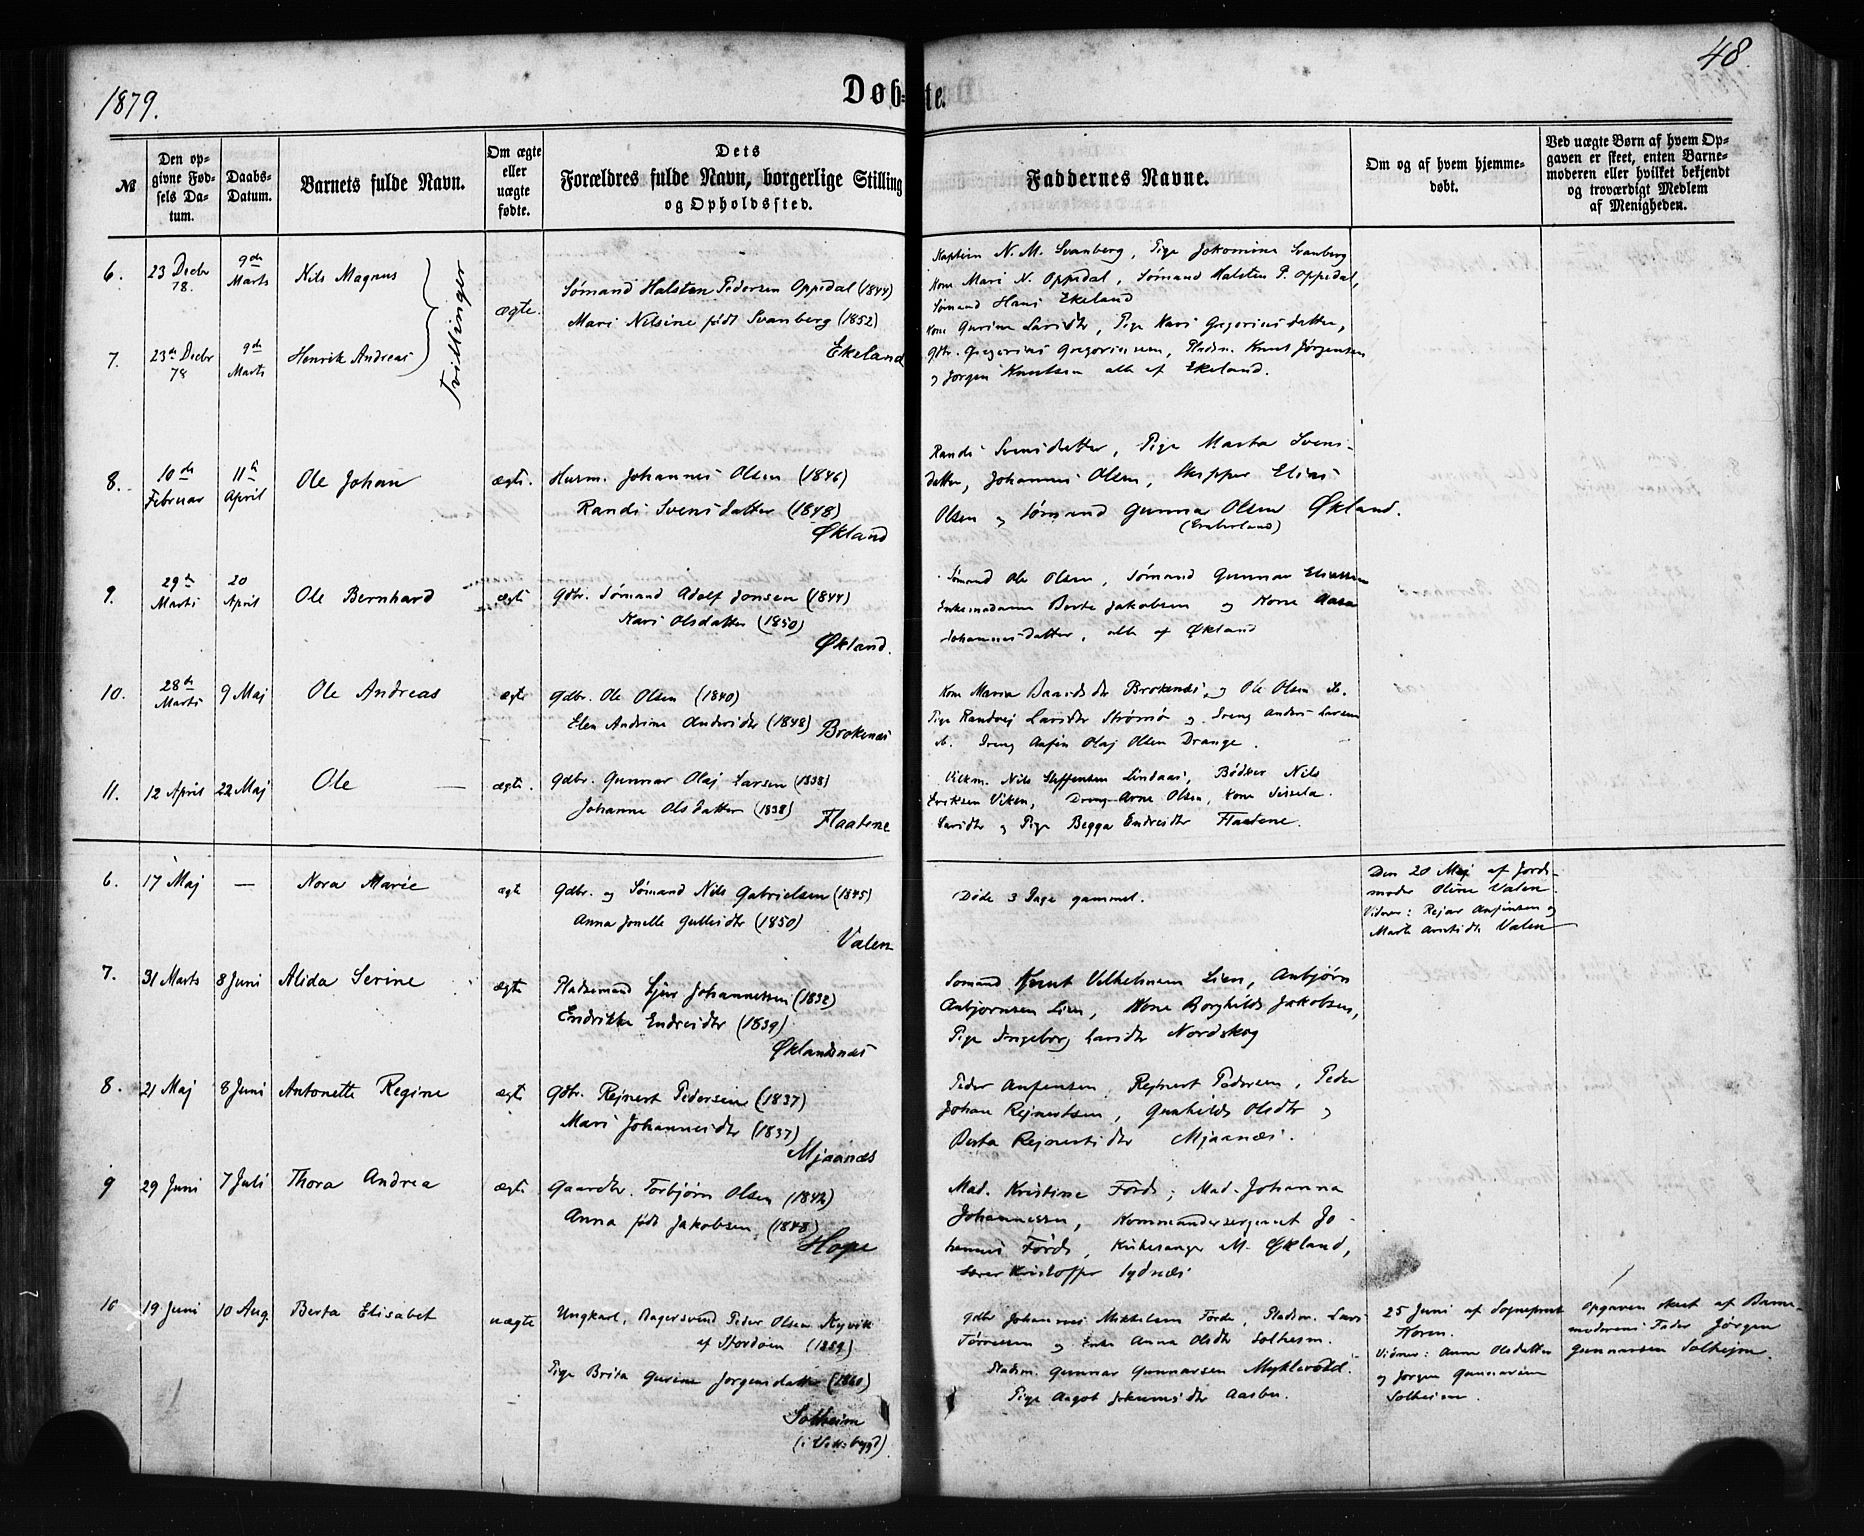 1879.
Døb-
te.
48.
№
Den op-
givne Fød-
sels Da-
tum.
Daabs-
Datum.
Barnets fulde Navn.
Om ægte
eller
uægte
fødte.
Dets
Forældres fulde Navn, borgerlige Stilling
og Opholdssted.
Faddernes Navne.
Om og af hvem hjemme-
døbt.
Ved uægte Børn af hvem Op-
gaven er skeet, enten Barne-
moderen eller hvilket bekjendt
og troværdigt Medlem
af Menigheden.
6.
23 Decbr
78.
9de
Marts
Nils Magnus
Tvillinger
ægte.
Sømand Halsten Pedersen Oppedal (1844)
Mari Nilsine født Svanberg (1852)
Ekeland
Kaptein N. M. Svanberg, Pige Jakomine Svanberg
Kone Mari N. Oppedal, Sømand Halsten P. Oppedal,
Sømand Hans Ekeland
7.
23de Decbr
78
9de
Marts
Henrik Andreas
Kone Gurine Larsdtr, Pige Kari Gregoriusdatter,
Gdbr. Gregorius Gregoriussen, Pladsm. Knut Jørgensen
og Jørgen Knutsen alle af Ekeland.
8.
10de
Februar
11te
April
Ole Johan
ægte.
Husm. Johannes Olsen (1846)
Randi Svensdatter (1848)
Økland
Randi Svensdatter, Pige Marta Svens-
datter, Johannes Olsen, Skipper Elias
Olsen og Sømand Gunnar Olsen Økland.
9.
29de
Marts
20
April
Ole Bernhard
ægte
Gdbr. Sømand Adolf Jonsen (1844)
Kari Olsdatter (1850)
Økland.
Sømand Ole Olsen, Sømand Gunnar Eliassen
Enkemadame Berte Jakobsen og Kone Aasa
Johannesdatter, alle af Økland
10.
28de
Marts
9 Maj
Ole Andreas
ægte
Gdbr. Ole Olsen (1840)
Elen Andrine Andersdtr (1848)
Brokenæs
Kone Maria Baardsdtr Brokenæs, og Ole Olsen ib.
Pige Randvej Larsdtr Strømø og Dreng Anders Larsen
ib. Dreng Anfin Olaj Olsen Drange.
11.
12 April
22 Maj
Ole
ægte.
Gdbr. Gunnar Olaj Larsen (1838)
Johanne Olsdatter (1838)
Flaatene
Nils Steffensen Lindaas, Bødker Nils
Eriksen Viken, Dreng Arne Olsen, Kone Sissela
Larsdtr og Pige Begga Endresdtr Flaatene.
6.
17 Maj
—
Nora Marie
ægte
Gdbr. og Sømand Nils Gabrielsen (1845)
Anna Jonette Gulleisdtr (1850)
Valen
Døde 3 Dage gammel.
Den 20 Maj af Jord-
moder Oline Valen.
Vidner: Rejar Anfinsen og
Marta Arnesdtr Valen
7.
31 Marts
8 Juni
Alida Serine
ægte
Pladsemand Sjur Johannessen (1832)
Endrikke Endresdtr (1839)
Øklandsnæs
Sømand Knut Vilhelmsen Lien, Anbjørn
Anbjørnsen Lien, Kone Borghilde Jakobsen,
Pige Ingeborg Larsdtr Nordskog
8.
21 Maj
8 Juni
Antonette Regine
ægte
Gdbr. Rejnert Pedersen (1837)
Mari Johannesdtr (1837)
Mjaanæs
Peder Anfinsen, Rejnert Pedersen, Peder
Johan Rejnertsen, Gunhilde Olsdtr og
Berta Rejnertsdtr Mjaanæs.
9
29 Juni
7 Juli
Thora Andrea
ægte
Gaardbr. Torbjørn Olsen (1842)
Anna født Jakobsen (1848)
Hope
Mad. Kristine Førde, Mad. Johanna
Johannessen, Kommandersergeant Jo-
hannes Førde, Kirkesanger M. Økland,
Lærer Kristoffer Sydnæs
10
19 Juni
10 Aug.
Berta Elisabet
uægte
Ungkarl, Bagersvend Peder Olsen Kyvik
af Stordøen
Pige Brita Gurine Jørgensdatter (1860)
Solheim
(i Vikebygd)
Gdbr Johannes Mikkelsen Førde, Pladsm. Lars
Tørressen og Enke Anna Olsdtr Solheim.
Pladsm. Gunnar Gunnarsen Myklevold.
Pige Aagot
25 Juni af Sogneprest
Horn.
Vidner: Anna Olsdatter
og Jørgen Gunnarsen
Solheim
Opgaven skeet af Barne-
moderens Fader Jørgen
Gunnarsen Solhejm.